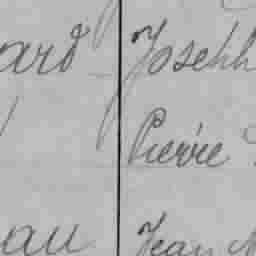 ard Joseph
Pierre
au Jean